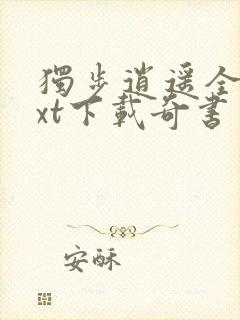 獨步逍遥全
xt下載奇書
安酥